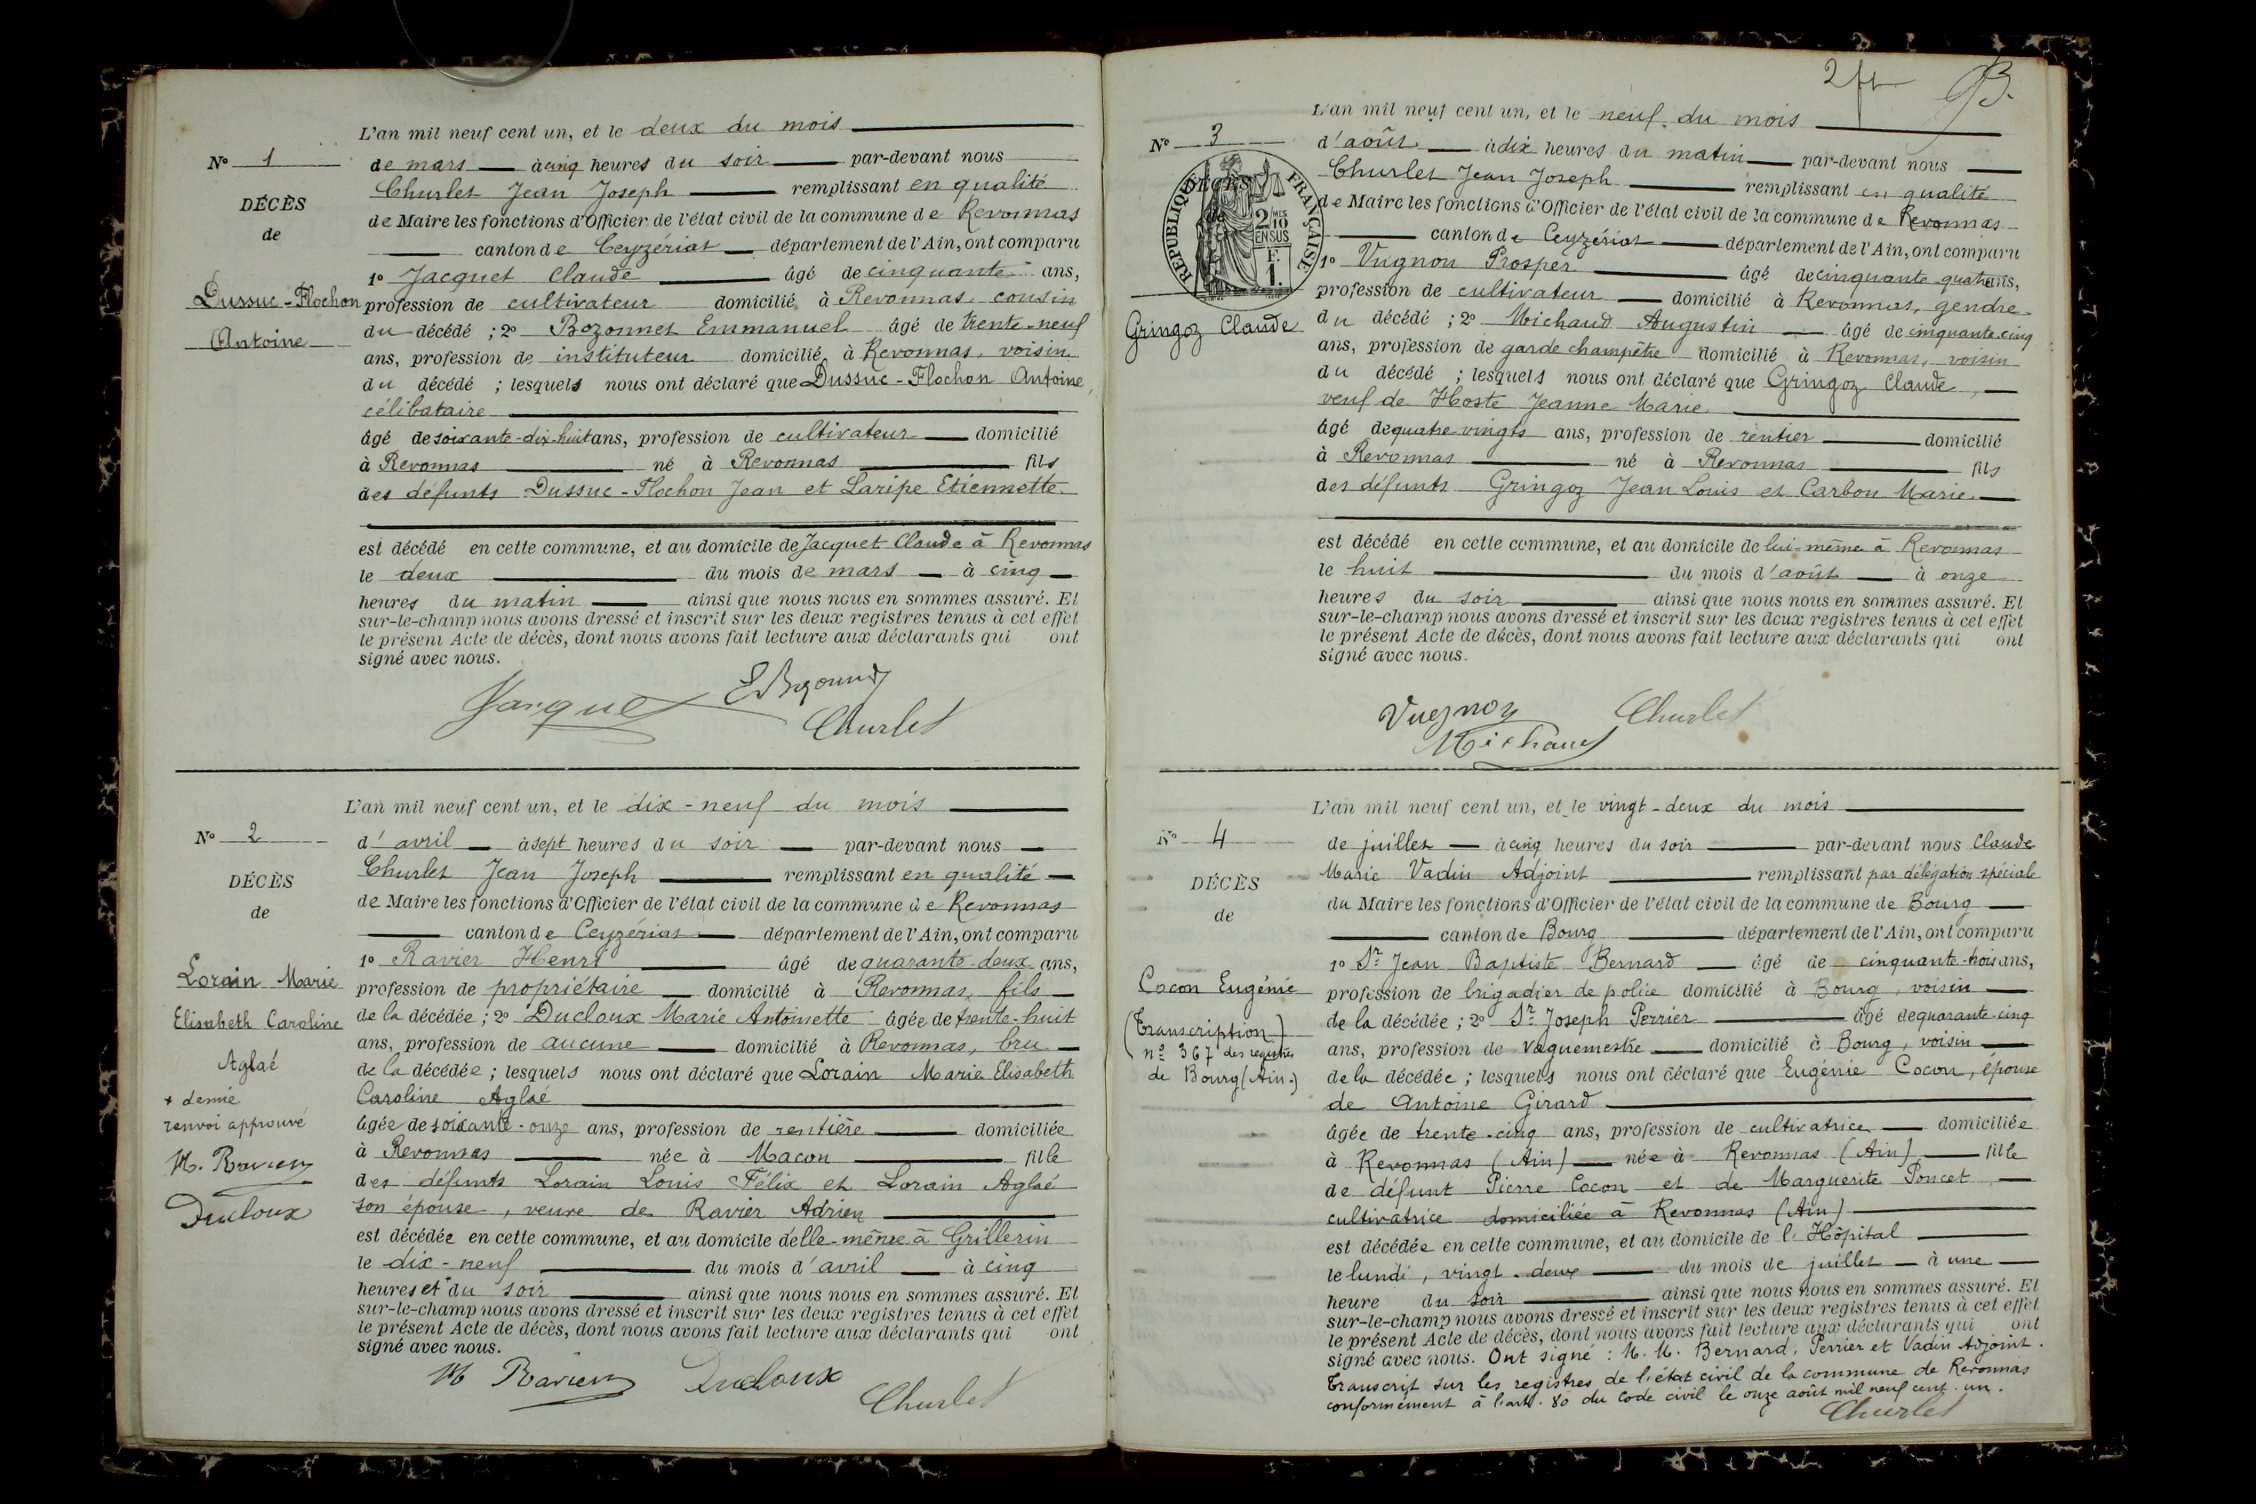 L'an mil neuf cent un, et le deux du mois
N° 1
de mars à cinq heures du soir par-devant nous
Churlet Jean Joseph remplissant en qualité
DÉCÈS
de Maire les fonctions d'Officier de l'état civil de la commune de Revonnas
de
canton de Ceyzériat département de l'Ain, ont comparu
1° Jacquet Claude âgé de cinquante ans,
Dussuc-Flochon
profession de cultivateur domicilié à Revonnas, cousin
du décédé ; 2° Bozonnet Emmanuel âgé de trente-neuf
Antoine
ans, profession de instituteur domicilié à Revonnas, voisin
du décédé ; lesquels nous ont déclaré que Dussuc-Flochon Antoine,
célibataire
âgé de soixante-dix-huit ans, profession de cultivateur domicilié
à Revonnas né à Revonnas fils
des défunts Dussuc-Flochon Jean et Laripe Etiennette
est décédé en cette commune, et au domicile de Jacquet Claude à Revonnas
le deux du mois de mars à cinq
heures du matin ainsi que nous nous en sommes assuré. Et
sur-le-champ nous avons dressé et inscrit sur les deux registres tenus à cet effet
le présent Acte de décès, dont nous avons fait lecture aux déclarants qui ont
signé avec nous.
Jacquet EBozonnet
Churlet
L'an mil neuf cent un, et le dix-neuf du mois
N° 2
d'avril à sept heures du soir par-devant nous
Churlet Jean Joseph remplissant en qualité
DÉCÈS
de Maire les fonctions d'Officier de l'état civil de la commune de Revonnas
de
canton de Ceyzériat département de l'Ain, ont comparu
1° Ravier Henri âgé de quarante-deux ans,
Lorain Marie
profession de propriétaire domicilié à Revonnas, fils
Elisabeth Caroline
de la décédée ; 2° Ducloux Marie Antoinette âgée de trente-huit
ans, profession de aucune domicilié à Revonnas, bru
Aglaé
de la décédée ; lesquels nous ont déclaré que Lorain Marie Elisabeth
+ demie
Caroline Aglaé
renvoi approuvé
âgée de soixante-onze ans, profession de rentière domiciliée
à Revonnas née à Macon fille
H. Ravier
des défunts Lorain Louis Félix et Lorain Aglaé
Ducloux
son épouse, veuve de Ravier Adrien
est décédée en cette commune, et au domicile d'elle-même à Grillerin
le dix-neuf du mois d'avril à cinq
heures et + du soir ainsi que nous nous en sommes assuré. Et
sur-le-champ nous avons dressé et inscrit sur les deux registres tenus à cet effet
le présent Acte de décès, dont nous avons fait lecture aux déclarants qui ont
signé avec nous.
H Ravier Ducloux
Churlet
L'an mil neuf cent un, et le neuf du mois
N° 3
d'août à dix heures du matin par-devant nous
Churlet Jean Joseph remplissant en qualité
RÉPUBLIQUE FRANÇAISE
2 MES 10 EN SUS
F. 1.
de Maire les fonctions d'Officier de l'état civil de la commune de Revonnas
canton de Ceyzériat département de l'Ain, ont comparu
1° Vugnon Prosper âgé de cinquante quatre ans,
profession de cultivateur domicilié à Revonnas, gendre
Gringoz Claude
du décédé ; 2° Michaud Augustin âgé de cinquante-cinq
ans, profession de garde champêtre domicilié à Revonnas, voisin
du décédé ; lesquels nous ont déclaré que Gringoz Claude,
veuf de Hoste Jeanne Marie
âgé de quatre vingts ans, profession de rentier domicilié
à Revonnas né à Revonnas fils
des défunts Gringoz Jean Louis et Carbon Marie
est décédé en cette commune, et au domicile de lui-même à Revonnas
le huit du mois d'août à onze
heures du soir ainsi que nous nous en sommes assuré. Et
sur-le-champ nous avons dressé et inscrit sur les deux registres tenus à cet effet
le présent Acte de décès, dont nous avons fait lecture aux déclarants qui ont
signé avec nous.
Vugnon Churlet
Michaud
L'an mil neuf cent un, et le vingt-deux du mois
N° 4
de juillet à cinq heures du soir par-devant nous Claude
Marie Vadin Adjoint remplissant par délégation spéciale
DÉCÈS
du Maire les fonctions d'Officier de l'état civil de la commune de Bourg
de
canton de Bourg département de l'Ain, ont comparu
1° Sr Jean Baptiste Bernard âgé de cinquante-trois ans,
Cocon Eugénie
profession de brigadier de police domicilié à Bourg, voisin
(Transcription)
de la décédée ; 2° Sr Joseph Perrier âgé de quarante-cinq
n° 367 des registres
ans, profession de vaguemestre domicilié à Bourg, voisin
de Bourg (Ain.)
de la décédée ; lesquels nous ont déclaré que Eugénie Cocon, épouse
de Antoine Girard
âgée de trente-cinq ans, profession de cultivatrice domiciliée
à Revonnas (Ain) née à Revonnas (Ain) fille
de défunt Pierre Cocon et de Marguerite Poncet,
cultivatrice domiciliée à Revonnas (Ain)
est décédée en cette commune, et au domicile de l'Hôpital
le lundi, vingt-deux du mois de juillet à une
heure du soir ainsi que nous nous en sommes assuré. Et
sur-le-champ nous avons dressé et inscrit sur les deux registres tenus à cet effet
le présent Acte de décès, dont nous avons fait lecture aux déclarants qui ont
signé avec nous. Ont signé : M. M. Bernard, Perrier et Vadin Adjoint.
Transcrit sur les registres de l'état civil de la commune de Revonnas
conformément à l'art. 80 du Code civil le onze août mil neuf cent un.
Churlet